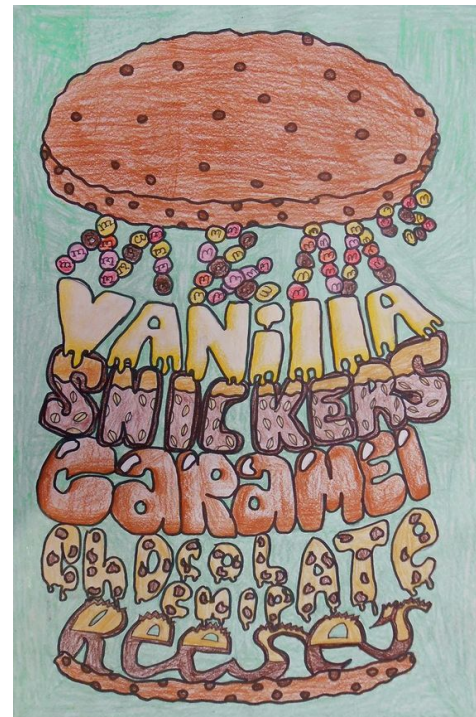 M&M's
VANilla
SNICKERS
CaRaMEl
ChOCOLATE
CHIP
Reeses